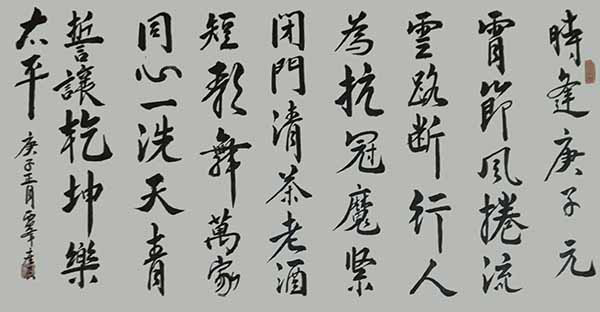 時逢庚子元
宵節風捲流
雲路断行人
為抗冠魔緊
閉門清茶老酒
短歌舞萬家
同心一洗天青
誓讓乾坤樂
太平
庚子三月